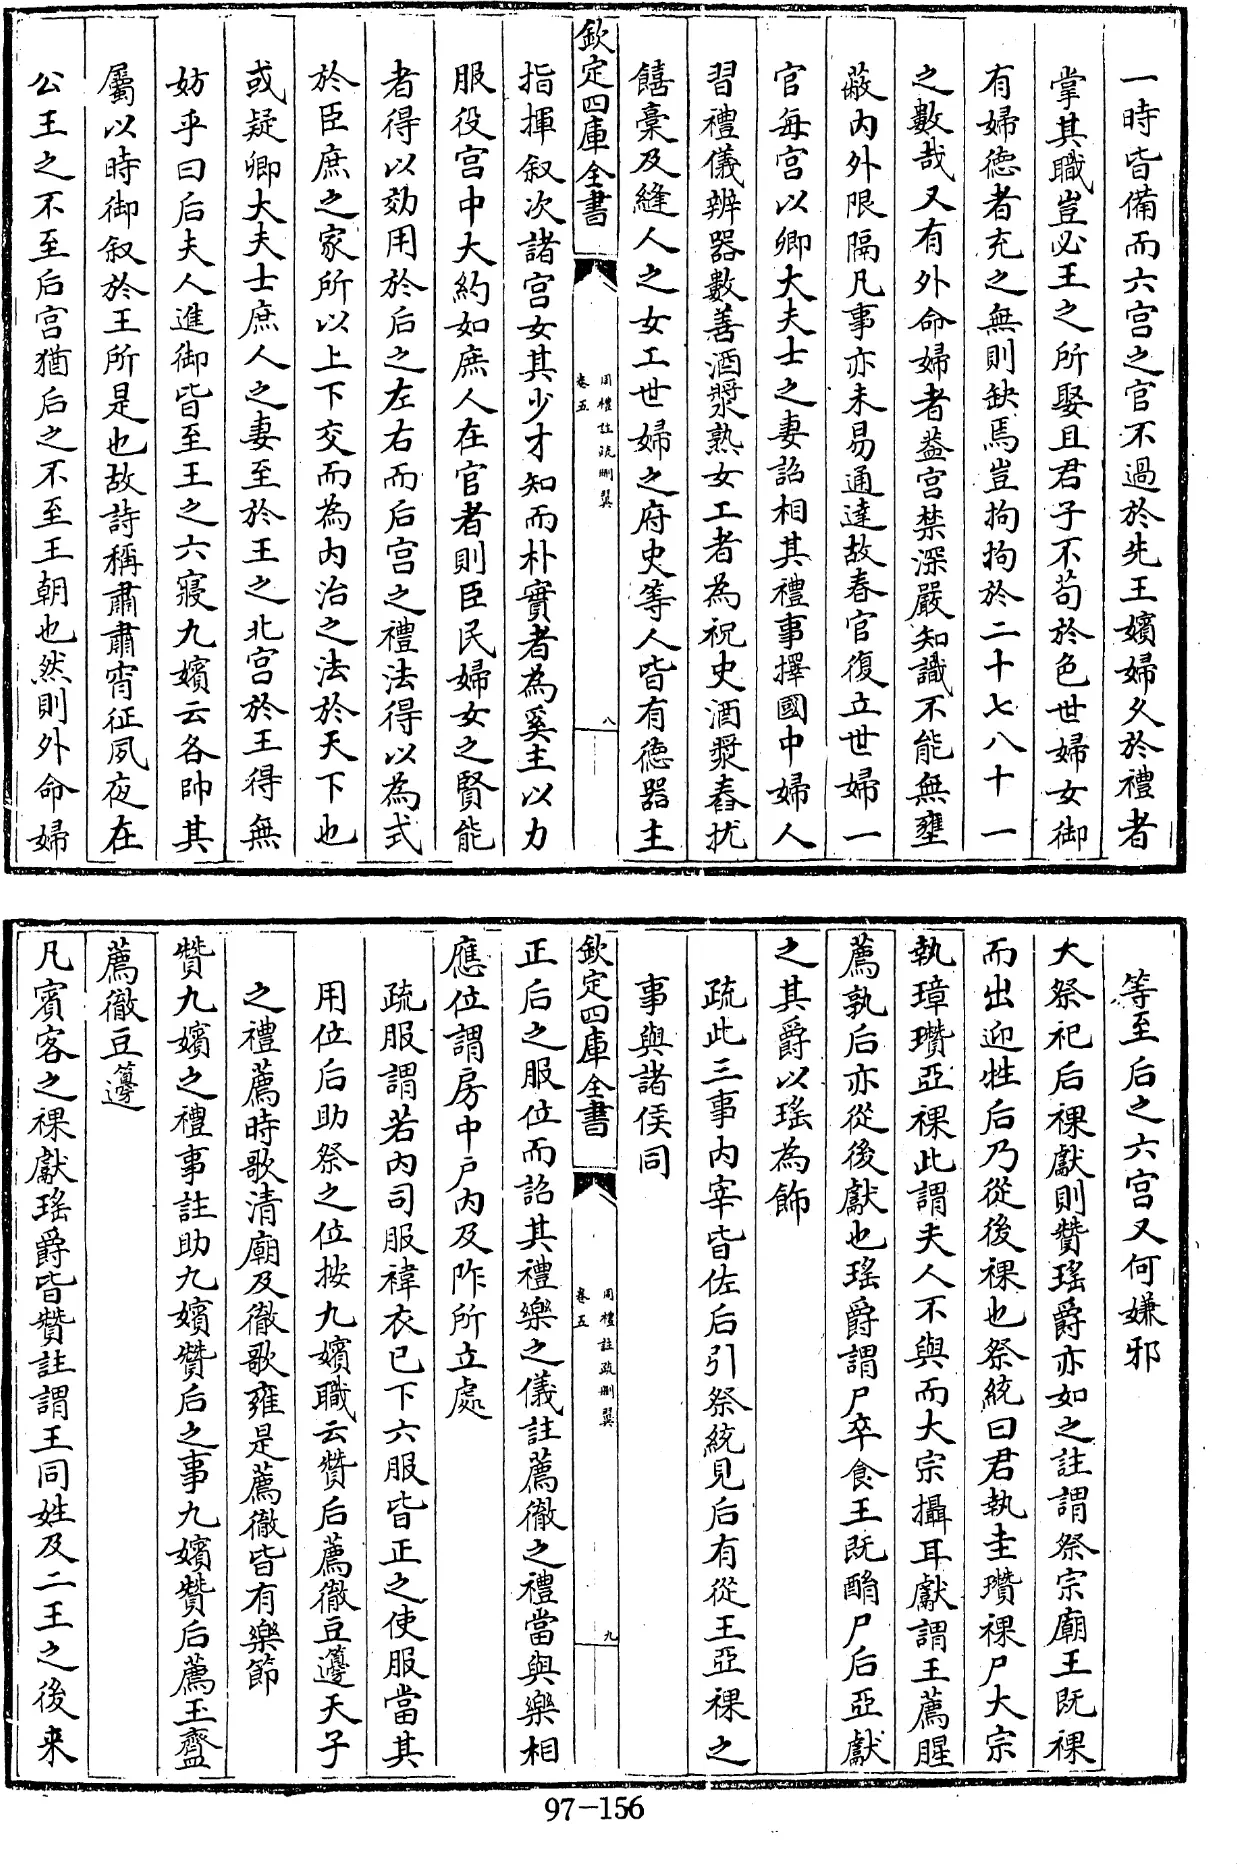 一時皆備而六宫之官不過於先王嬪婦久於禮者
掌其職豈必王之所娶且君子不苟於色世婦女御
有婦德者充之無則缺焉豈拘拘於二十七八十一
之數哉又有外命婦者葢宫禁深嚴知識不能無壅
蔽内外限隔凡事亦未易通達故春官復立世婦一
官每宫以卿大夫士之妻詔相其禮事擇國中婦人
習禮儀辨器數善酒漿熟女工者為祝史酒漿舂扰
饎槀及縫人之女工世婦之府史等人皆有德器主
欽定四庫全書
周禮註疏刪翼
卷五
八
指揮叙次諸宫女其少才知而朴實者為奚主以力
服役宫中大約如庶人在官者則臣民婦女之賢能
者得以効用於后之左右而后宫之禮法得以為式
於臣庶之家所以上下交而為内治之法於天下也
或疑卿大夫士庶人之妻至於王之北宫於王得無
妨乎曰后夫人進御皆至王之六寢九嬪云各帥其
屬以時御叙於王所是也故詩稱肅肅宵征夙夜在
公王之不至后宫猶后之不至王朝也然則外命婦
等至后之六宫又何嫌邪
大祭祀后祼獻則贊瑤爵亦如之註謂祭宗廟王既祼
而出迎牲后乃從後祼也祭統曰君執圭瓚祼尸大宗
執璋瓚亞祼此謂夫人不與而大宗攝耳獻謂王薦腥
薦孰后亦從後獻也瑤爵謂尸卒食王既酳尸后亞獻
之其爵以瑤為飾
疏此三事内宰皆佐后引祭統見后有從王亞祼之
事與諸侯同
欽定四庫全書
周禮註疏刪翼
卷五
九
正后之服位而詔其禮樂之儀註薦徹之禮當與樂相
應位謂房中戸内及阼所立處
疏服謂若内司服褘衣已下六服皆正之使服當其
用位后助祭之位按九嬪職云贊后薦徹豆籩天子
之禮薦時歌清廟及徹歌雍是薦徹皆有樂節
贊九嬪之禮事註助九嬪贊后之事九嬪贊后薦玉齍
薦徹豆籩
凡賓客之祼獻瑤爵皆贊註謂王同姓及二王之後来
97-156